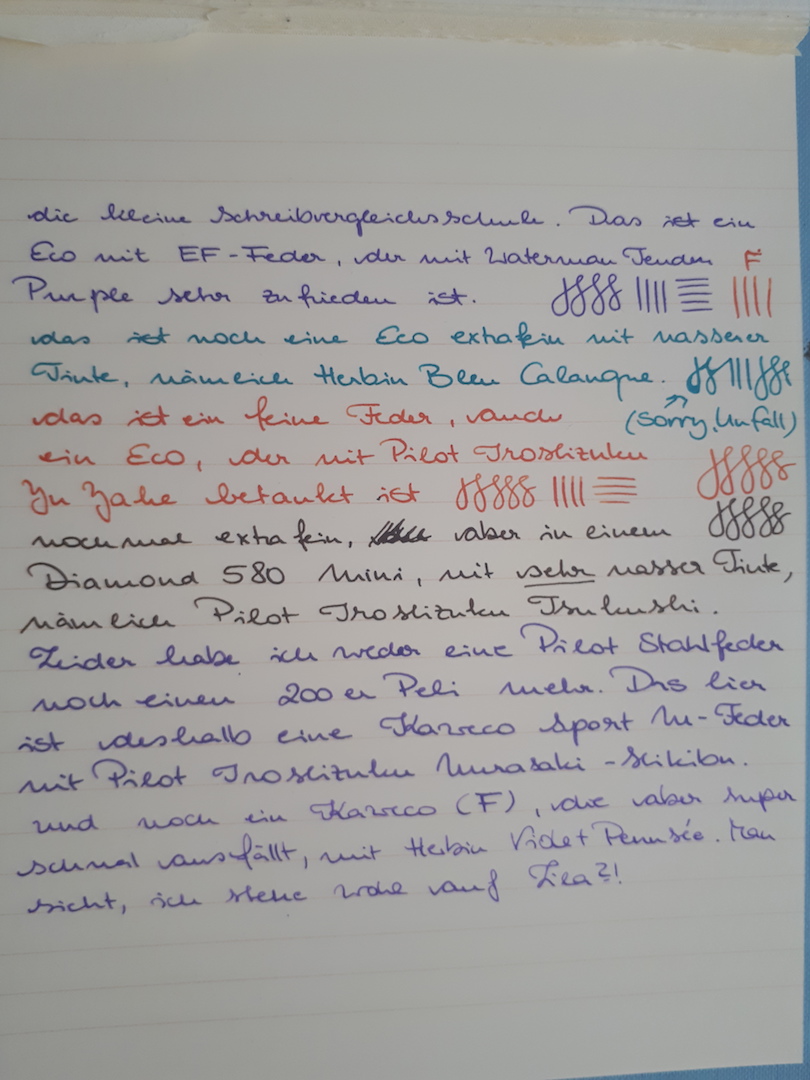 die kleine Schreibvergleichsschule. Das ist ein
Eco mit EF-Feder, der mit Waterman Tender F
Purple sehr zufrieden ist.
das ist noch eine Eco extrafein mit nasserer
Tinte, nämlich Herbin Bleu Calanque.
das ist ein feine Feder, auch (Sorry, Unfall)
ein Eco, der mit Pilot Iroshizuku
Yu Yake betankt ist
nochmal extrafein, aber in einem
Diamond 580 Mini, mit sehr nasser Tinte,
nämlich Pilot Iroshizuku Tsukushi.
Leider habe ich weder eine Pilot Stahlfeder
noch einen 200er Peli mehr. Das hier
ist deshalb eine Kaweco Sport M-Feder
mit Pilot Iroshizuku Murasaki-Shikibu.
und noch ein Kaweco (F), die aber super
schmal ausfällt, mit Herbin Violet Pensée. Man
sieht, ich stehe wohl auf Lila?!